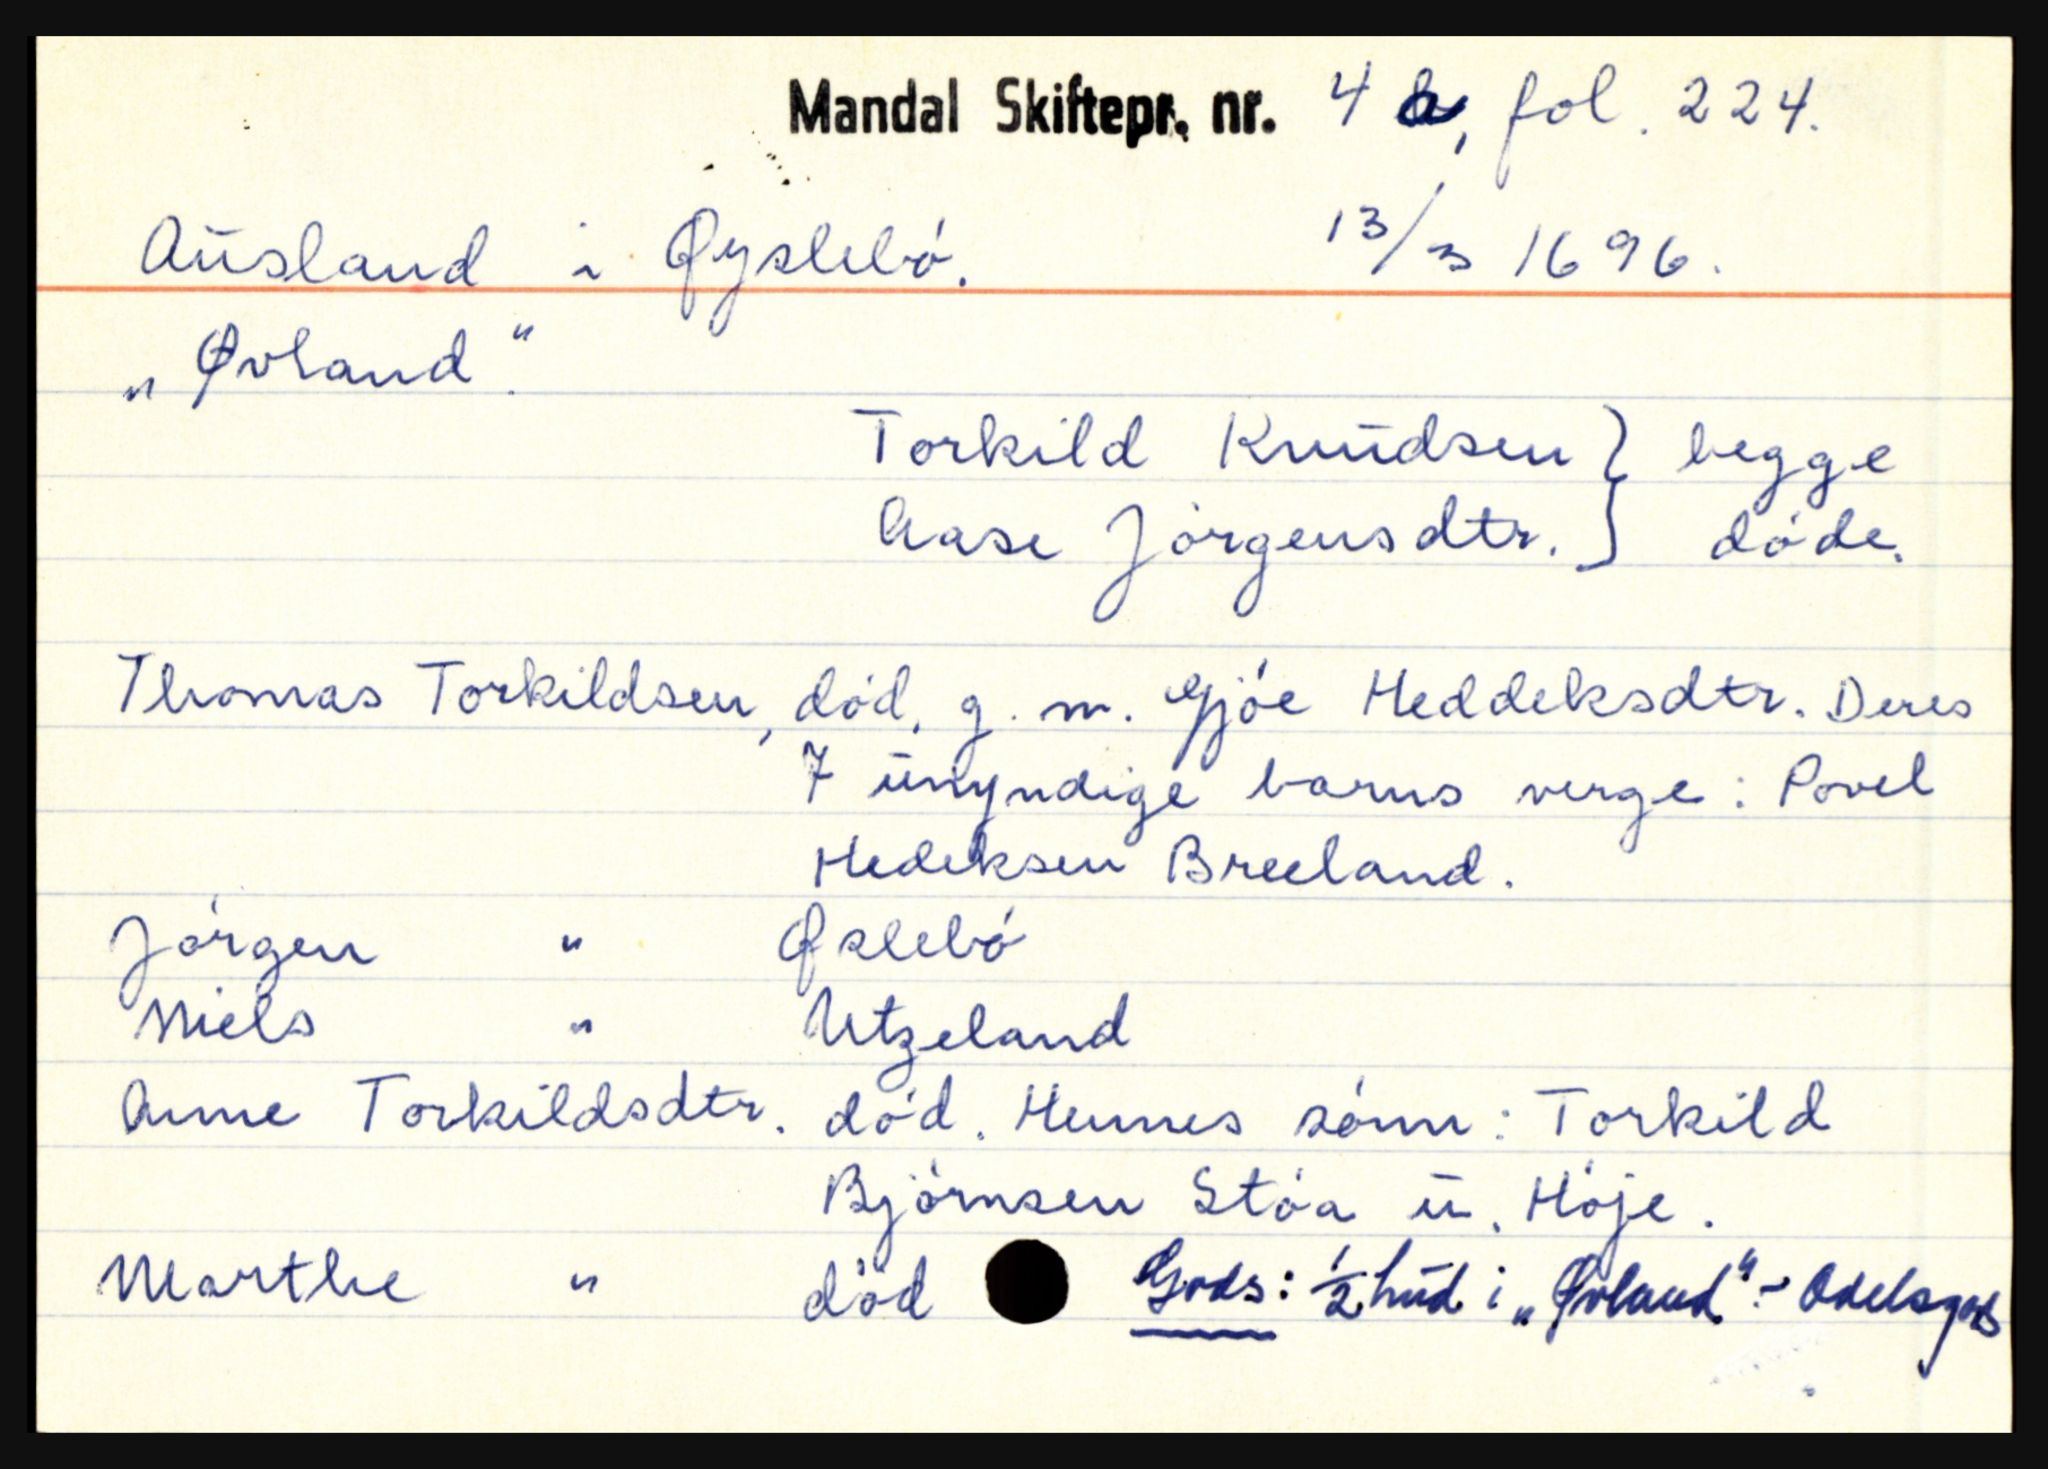 Mandal Skiftepr. nr. 4 a, fol. 224.
Ausland i Øyslebö. 13/3 1696.
„Øvland".
Torkild Knudsen } begge
Aase Jörgensdtr. } döde.
Thomas Torkildsen, död, g. m. Gjöe Heddeksdtr. Deres
7 umyndige barns verge: Povel
Hedeksen Breeland.
Jörgen " Øslebö
Niels " Utzeland
Anne Torkildsdtr. död. Hennes sönn: Torkild
Björnsen Stöa u. Höje.
Marthe " död Gods: 1/2 hud i „Øvland". - Odelsgods